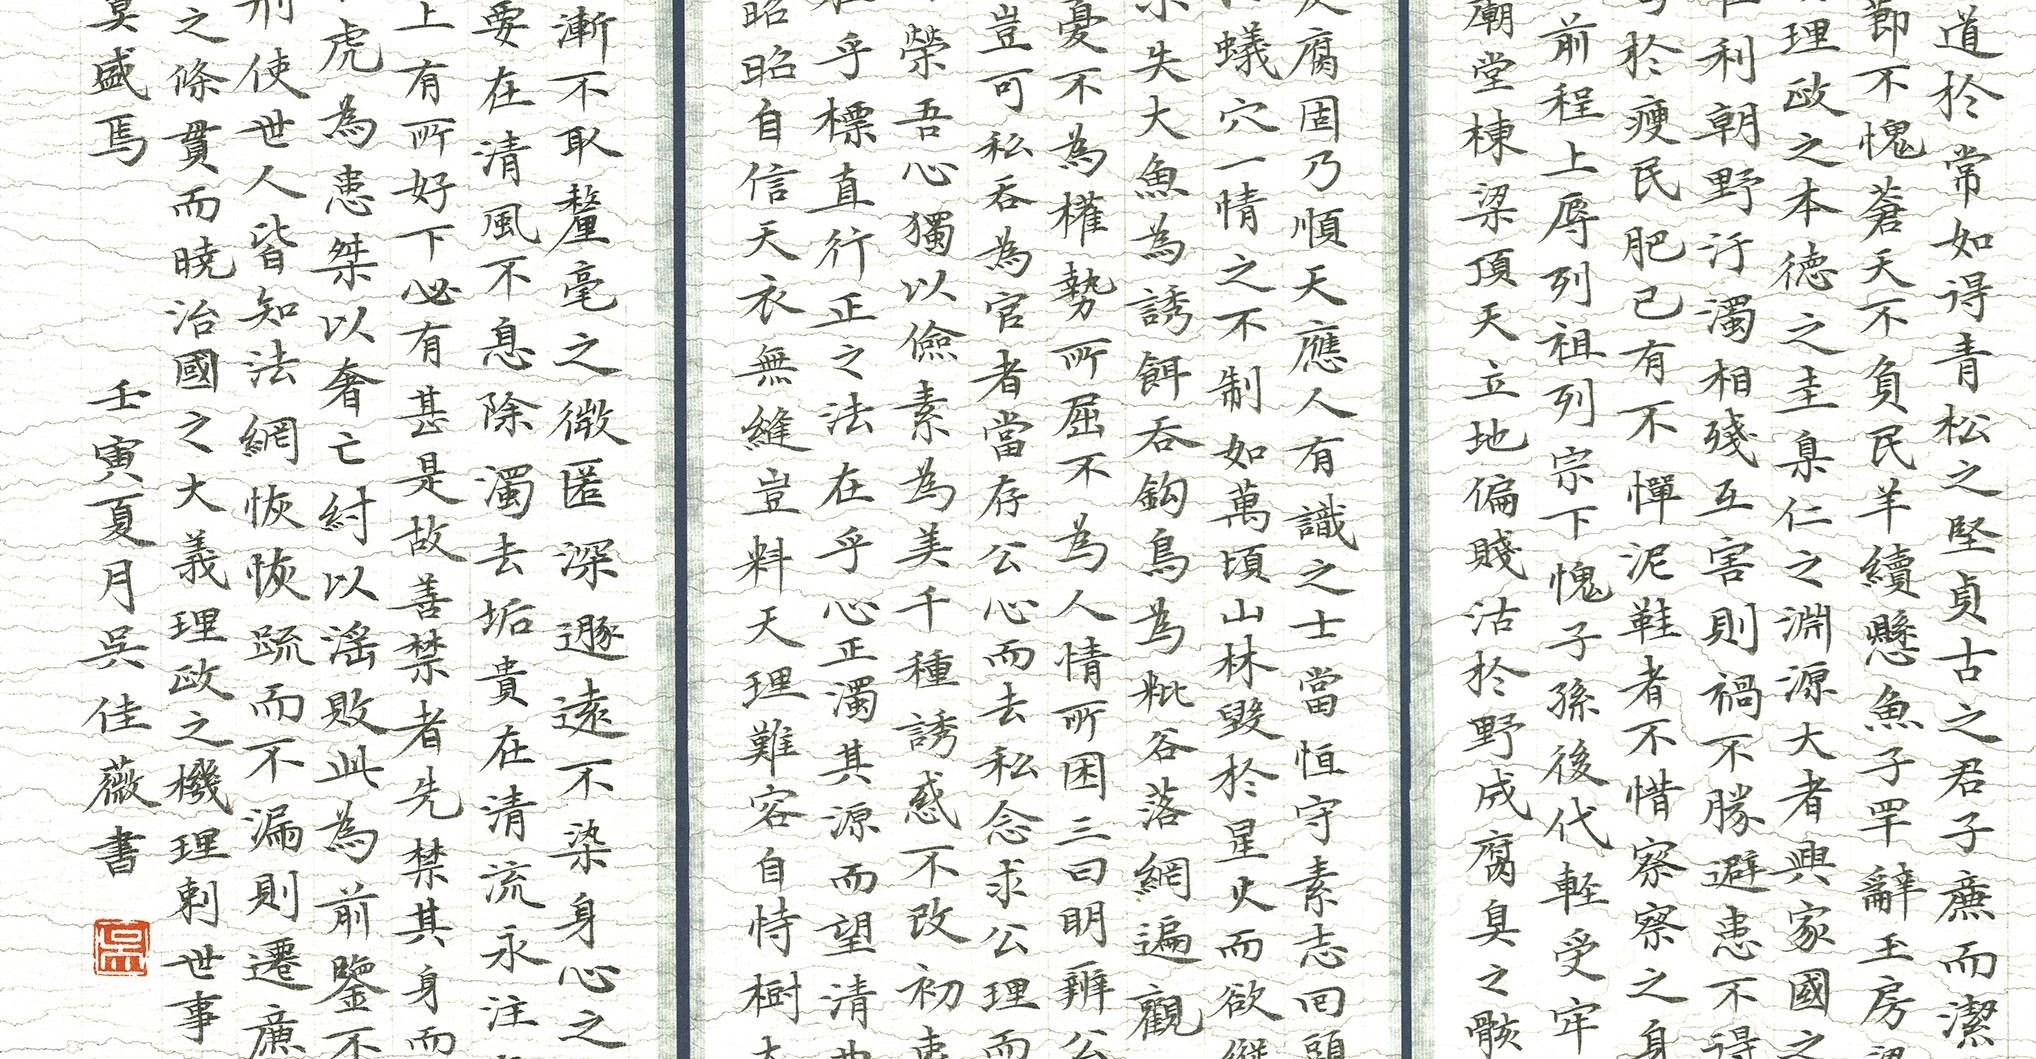 道於常如得青松之堅貞古之君子廉而潔
節不愧蒼天不負民羊續懸魚子罕辭玉房
理政之本德之圭臬仁之淵源大者興家國之
利朝野汙濁相殘互害則禍不勝避患不得
於瘦民肥己有不憚泥鞋者不惜察察之身
前程上辱列祖列宗下愧子孫後代輕受牢
廟堂棟梁頂天立地偏賤沽於野成腐臭之骸
腐固乃順天應人有識之士當恒守素志回頭
蟻穴一情之不制如萬頃山林毀於星火而欲縱
失大魚為誘餌吞鈎鳥為粃谷落網遍觀
憂不為權勢所屈不為人情所困三曰明辨公
豈可私吞為官者當存公心而去私念求公理而
榮吾心獨以儉素為美千種誘惑不改初衷
乎標直行正之法在乎心正濁其源而望清
昭昭自信天衣無縫豈料天理難容自恃樹大
漸不取釐毫之微匿深遯遠不染身心之
要在清風不息除濁去垢貴在清流永注
上有所好下必有甚是故善禁者先禁其身而
虎為患桀以奢亡紂以滛敗此為前鑒不
刑使世人皆知法網恢恢疏而不漏則遷廉
之條貫而曉治國之大義理政之機理剌世事
莫盛焉
壬寅夏月吳佳薇書
吳